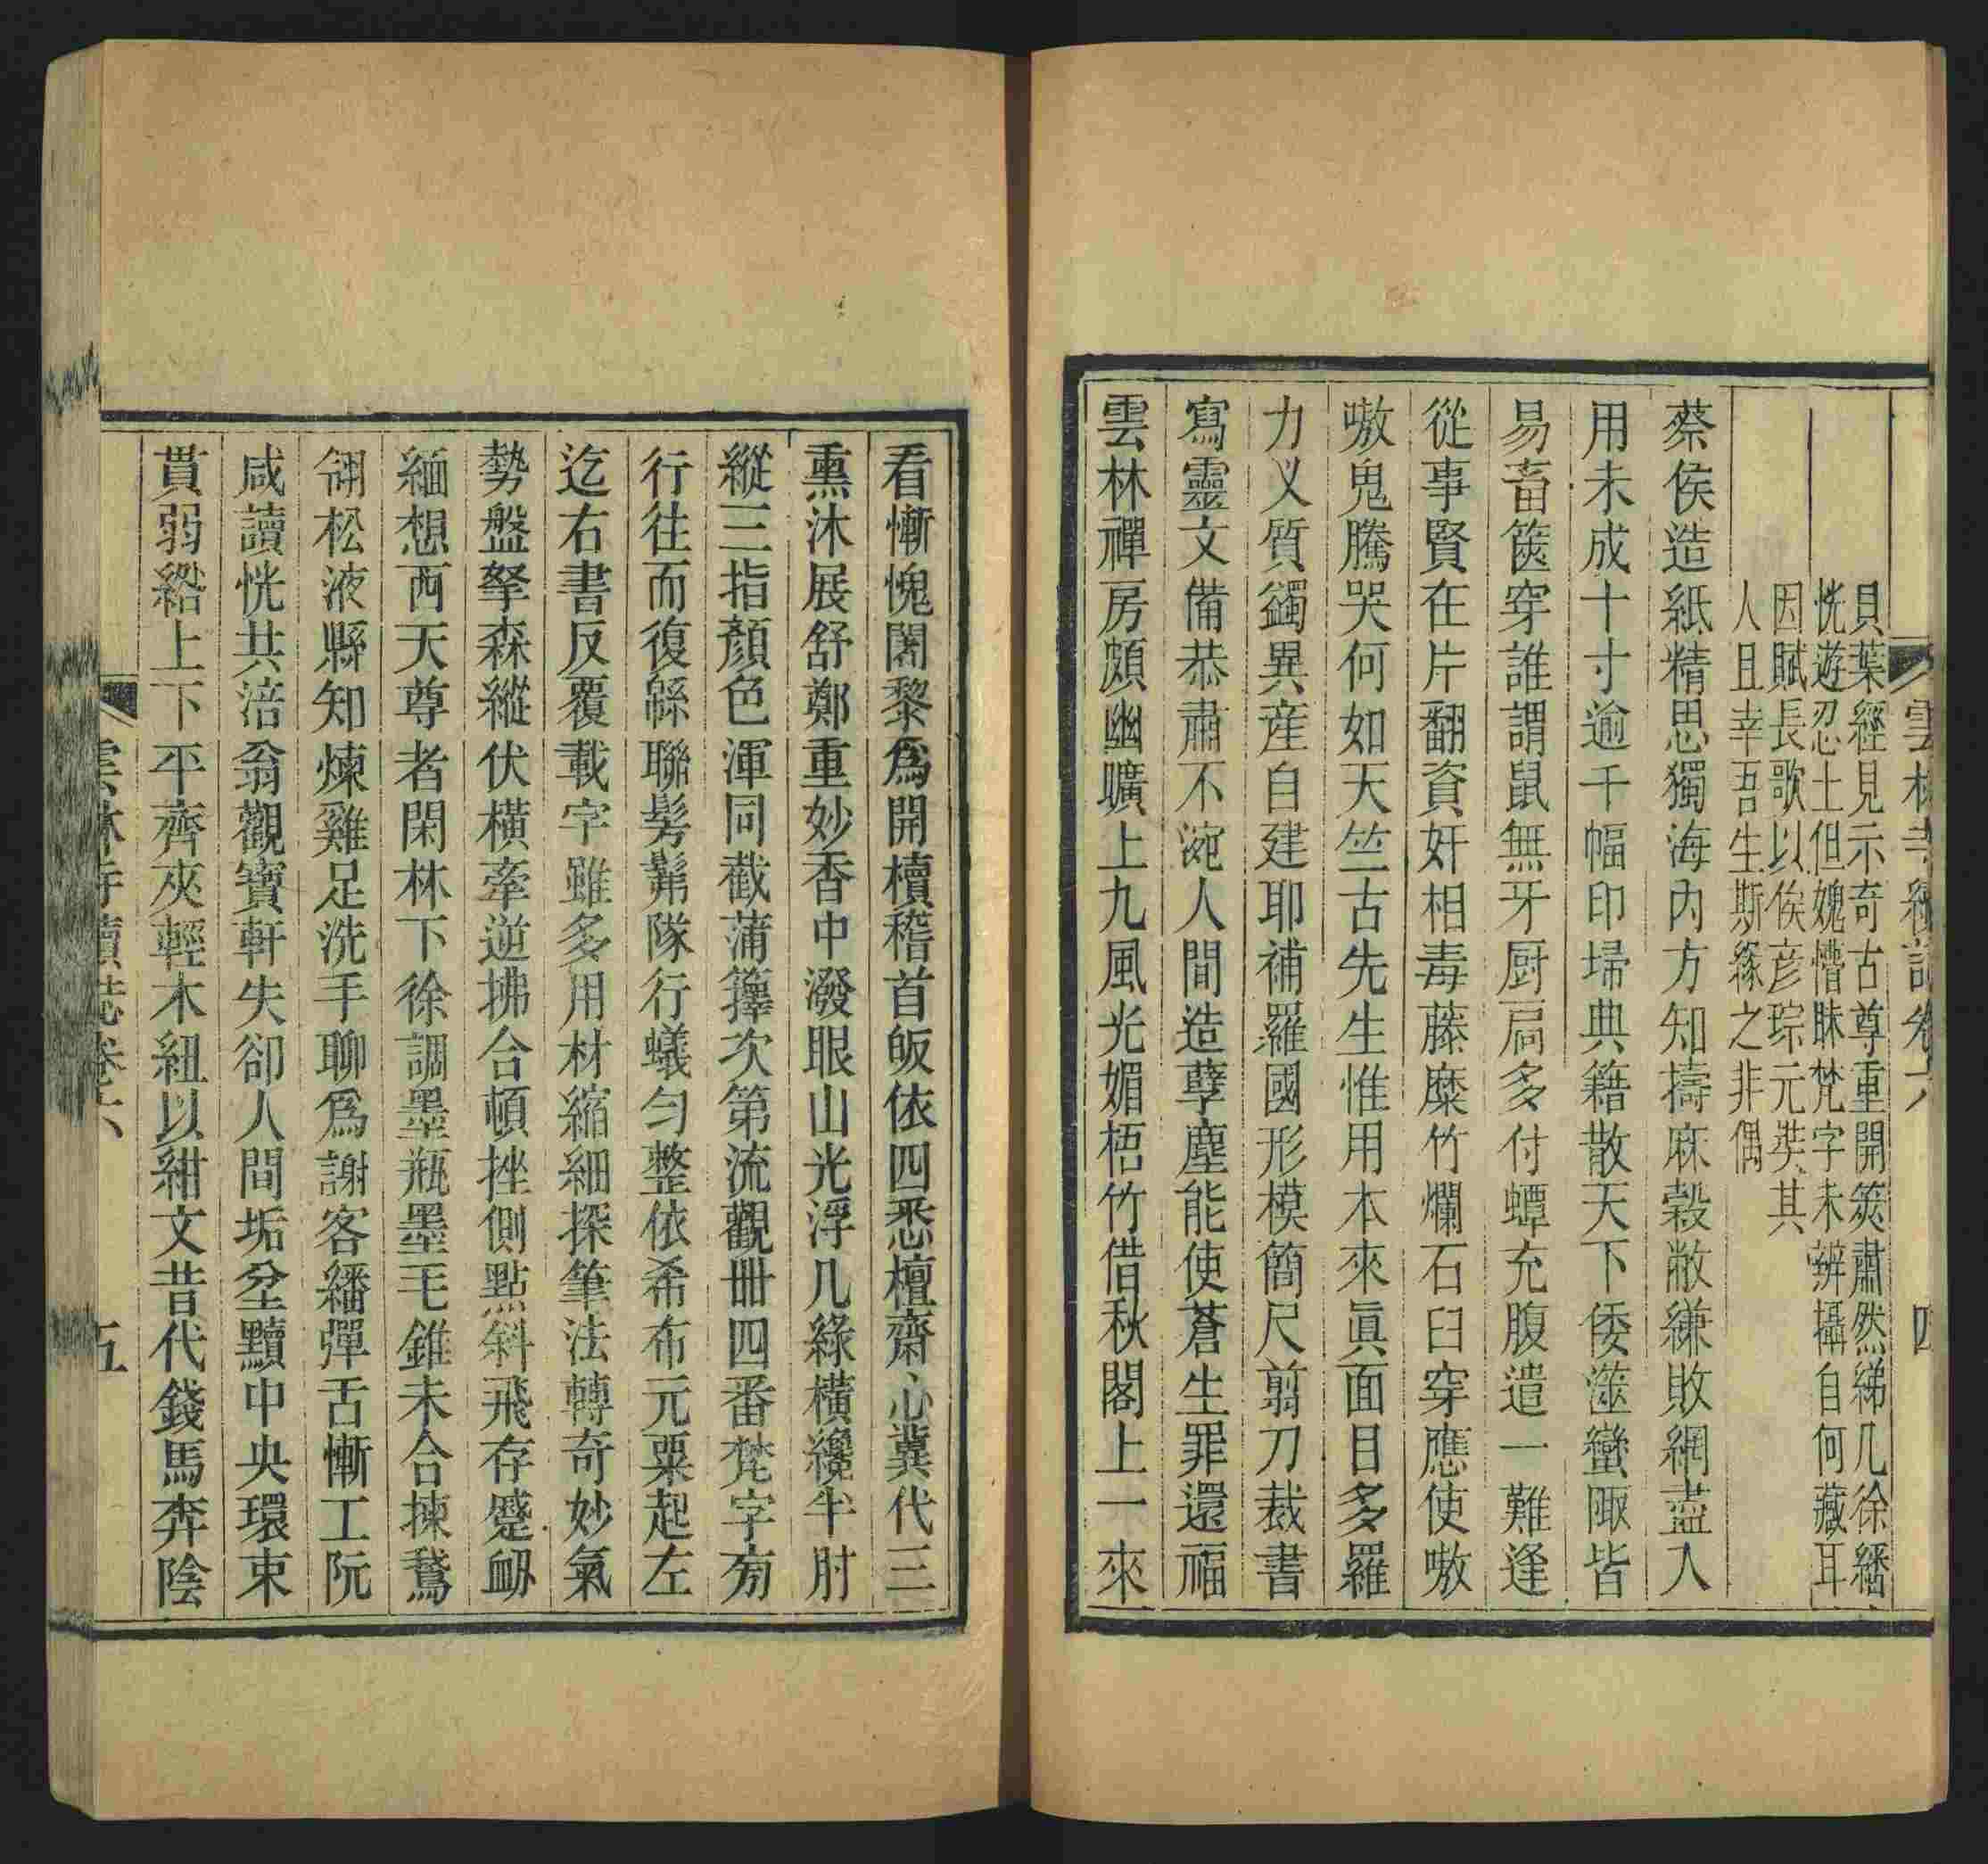 雲林寺續誌卷六
四
貝葉經見示奇古尊重開筴肅然綈几徐繙
恍遊忍土但媿懵眛梵字未辨攝自何藏耳
因賦長歌以俟彥琮元奘其
人且幸吾生斯緣之非偶
蔡侯造紙精思獨海內方知擣麻榖敝縑敗網盡入
用未成十寸逾千幅印埽典籍散天下倭澨蠻陬皆
易畜篋穿誰謂鼠無牙厨扃多付蟫充腹遣一難逢
從事賢在片翻資奸相毒藤糜竹爛石臼穿應使嗷
嗷鬼騰哭何如天竺古先生惟用本來眞面目多羅
力乂質蠲異産自建耶補羅國形模簡尺剪刀裁書
寫靈文備恭肅不涴人間造孽塵能使蒼生罪還福
雲林禪房頗幽曠上九風光媚梧竹借秋閣上一來
看慚愧闍黎爲開櫝稽首皈依四悉檀齋心冀代三
熏沐展舒鄭重妙香中潑眼山光浮几綠橫纔半肘
縱三指顏色渾同截蒲籜次第流觀卌四番梵字有
行往而復緜聯髣髴隊行蟻勻整依希布元粟起左
迄右書反覆載字雖多用材縮細探筆法轉奇妙氣
勢盤拏森縱伏橫牽逆拂合頓挫側點斜飛存蹙衂
緬想西天尊者閑林下徐調墨瓶墨毛錐未合揀鵞
翎松液縣知煉雞足洗手聊爲謝客繙彈舌慚工阮
咸讀恍共涪翁觀寶軒失卻人間垢坌黷中央環束
貫弱綹上下平齊夾輕木紐以紺文昔代錢馬奔陰
雲林寺續誌卷六
五